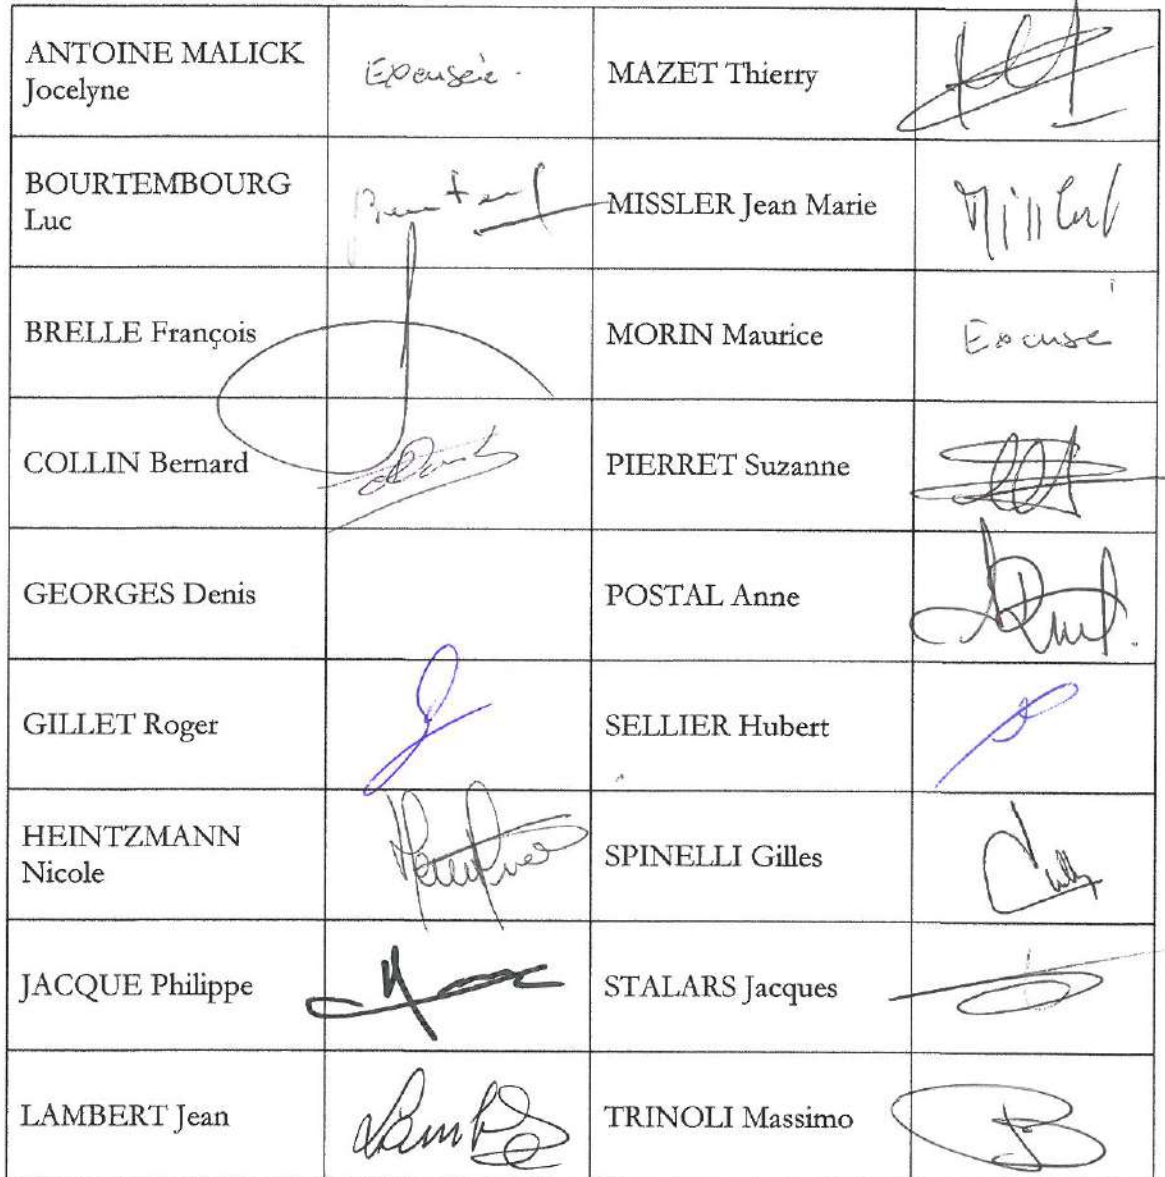 ANTOINE MALICK
Jocelyne
Excusée.
MAZET Thierry
BOURTEMBOURG
Luc
MISSLER Jean Marie
Missler
BRELLE François
MORIN Maurice
Excusé
COLLIN Bernard
PIERRET Suzanne
GEORGES Denis
POSTAL Anne
GILLET Roger
SELLIER Hubert
HEINTZMANN
Nicole
SPINELLI Gilles
JACQUE Philippe
STALARS Jacques
LAMBERT Jean
TRINOLI Massimo